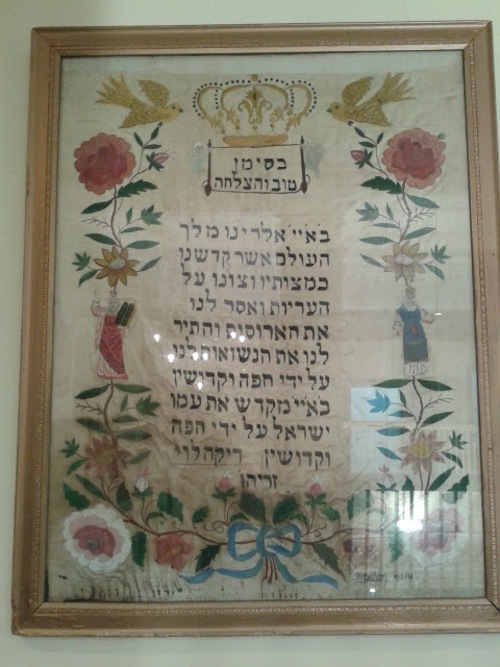 בסימן
טוב והצלחה
באיי׳ אלדינו מלך
העולם אשר קדשנו
במצותיו וצונו על
העריות ואסר לנו
את הארוסות והתיר
לנו את הנשואות לנו
על ידי חפה וקדושין
באיי׳ מקדש את עמו
ישראל על ידי חפה
וקדושין